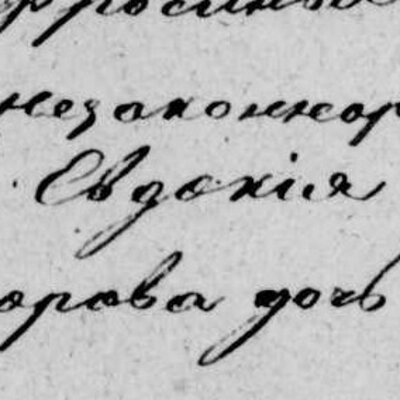 незаконнор
Евдокія
орова дочь